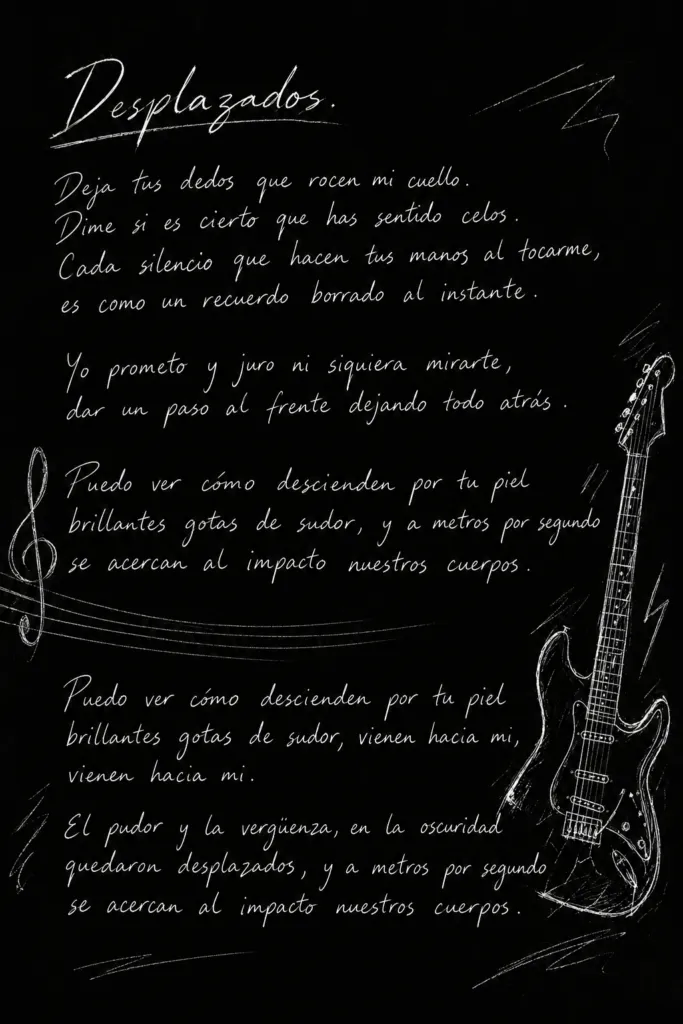 Desplazados.
Deja tus dedos que rocen mi cuello.
Dime si es cierto que has sentido celos.
Cada silencio que hacen tus manos al tocarme,
es como un recuerdo borrado al instante.
Yo prometo y juro ni siquiera mirarte,
dar un paso al frente dejando todo atrás.
Puedo ver cómo descienden por tu piel
brillantes gotas de sudor, y a metros por segundo
se acercan al impacto nuestros cuerpos.
Puedo ver cómo descienden por tu piel
brillantes gotas de sudor, vienen hacia mi,
vienen hacia mi.
El pudor y la vergüenza, en la oscuridad
quedaron desplazados, y a metros por segundo
se acercan al impacto nuestros cuerpos.